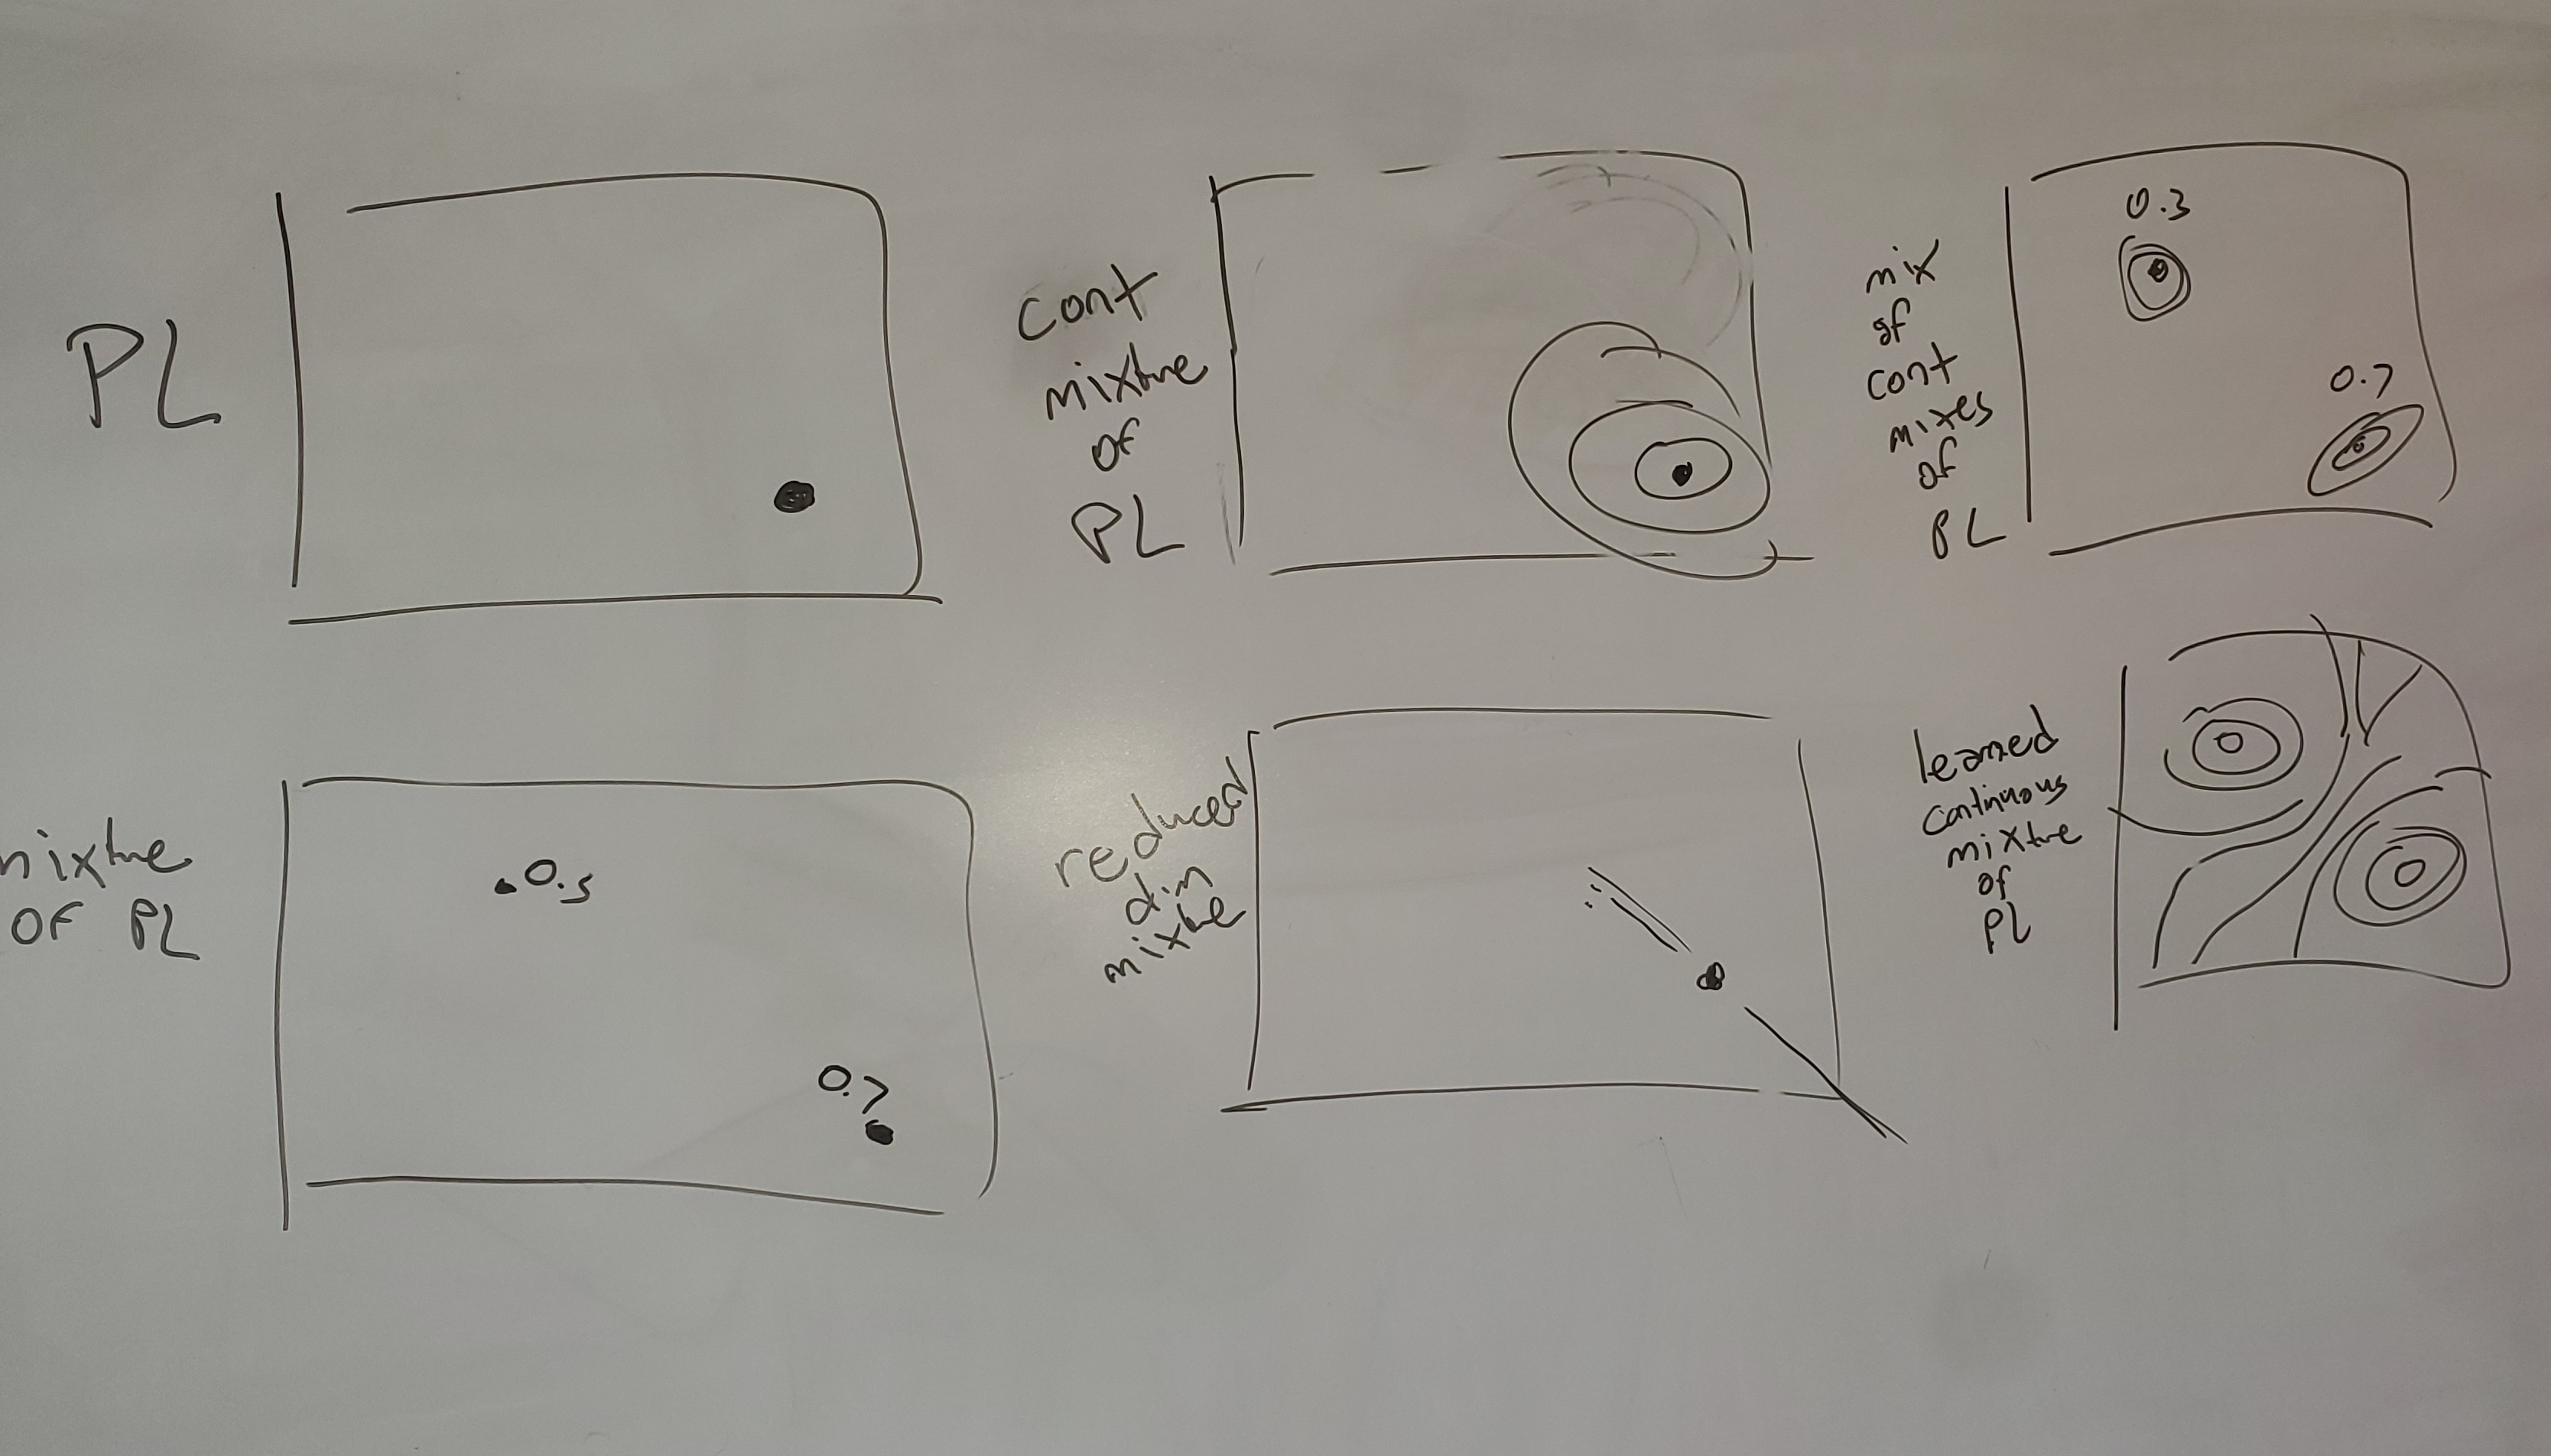 PL
cont
mixture
of
PL
mix
of
cont
mixes
of
PL
0.3
0.7
mixture
OF PL
0.5
0.7
reduced
dim
mixture
learned
continuous
mixture
of
PL